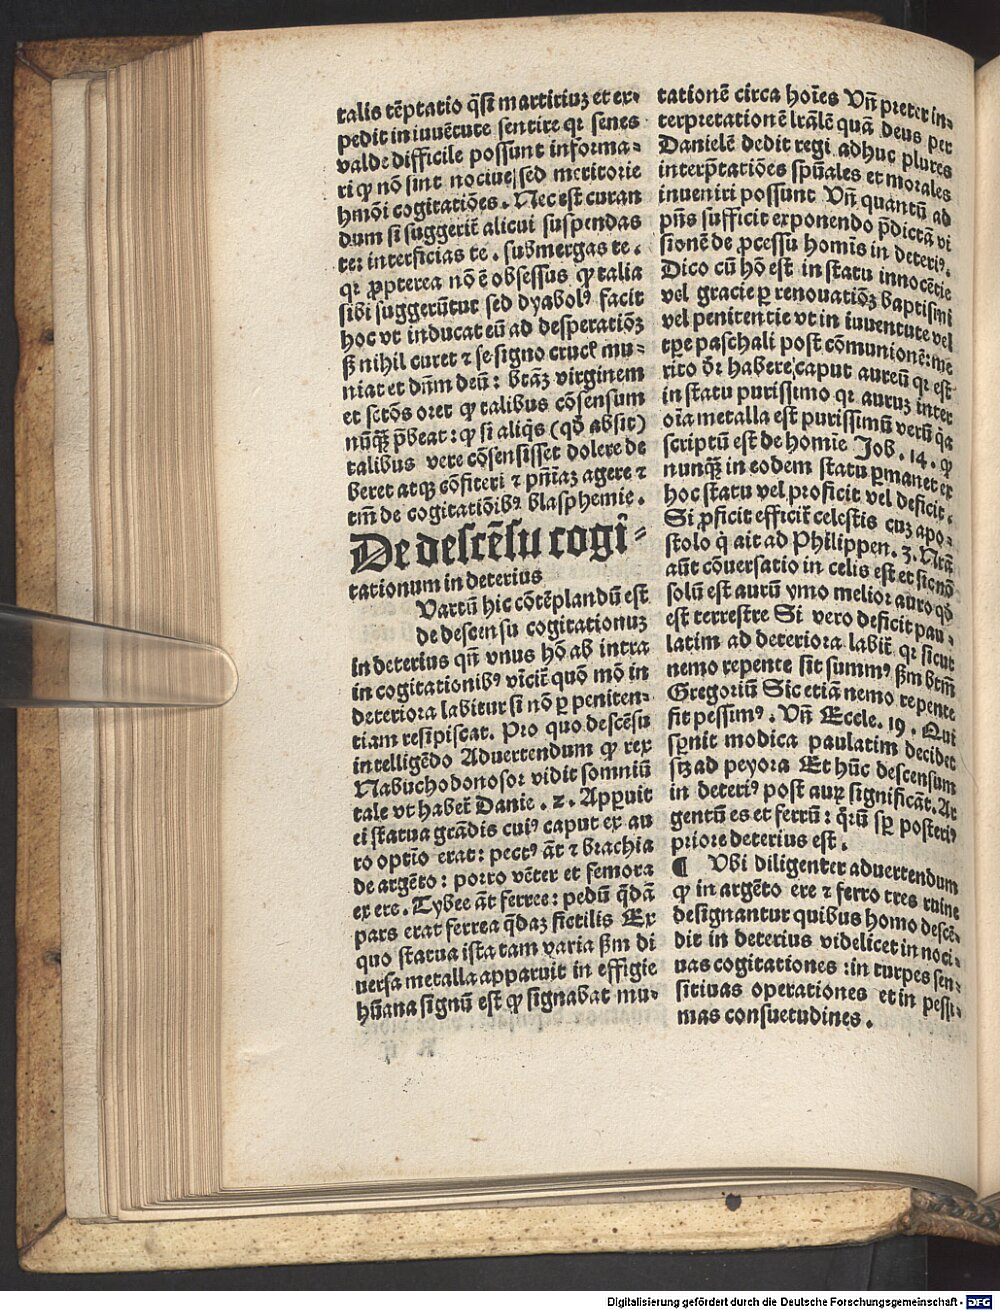 talis tẽptatio q̃si martiriuʒ et ex-
pedit in iuuẽtute sentire qꝛ senes
valde difficile possunt informa-
ri qp nõ sint nociue sed meritorie
hmõi cogitatiões. Nec est curan
dum si suggerit̃ alicui suspendas
te: interficias te. submergas te.
qꝛ ꝓpterea nõ ẽ obsessus qp talia
sibi suggerũtur sed dyabolꝰ facit
hoc vt inducat eũ ad desperatiõʒ
ß nihil curet ⁊ se signo cruc̃ mu-
niat et dñm deũ: btãʒ virginem
et sctõs oret qp talibus cõsensum
nũqʒ p̃beat: qp si aliq̃s (qð absit)
talibus vere cõsensisset dolere de
beret atqʒ cõfiteri ⁊ pñiaʒ agere ⁊
tm̃ de cogitatiõibꝰ blasphemie.
De descẽsu cogi-
tationum in deterius
Uartũ hic cõtẽplandũ est
de descensu cogitationuʒ
in deterius qñ vnus hõ ab intra
in cogitationibꝰ vĩcit̃ quõ mõ in
deteriora labitur si nõ ꝑ peniten-
tiam resipiscat. Pro quo descẽsu
intelligẽdo Aduertendum qp rex
Nabuchodonosor vidit somniũ
tale vt habet̃ Danie. 2. Apparuit
ei statua grãdis cuiꝰ caput ex au
ro optĩo erat: pectꝰ ãt ⁊ brachia
de argẽto: porro vẽter et femora
ex ere. Tybee ãt ferree: pedũ q̃dã
pars erat ferrea q̃daʒ fictilis Ex
quo statua ista tam varia ßm di
uersa metalla apparuit in effigie
hũana signũ est qp signabat mu-
tationẽ circa hoĩes Uñ preter in-
terpretationẽ lrãlẽ quã deus per
Danielẽ dedit regi adhuc plures
interp̃tatiões spũales et morales
inueniri possunt Uñ quantũ ad
pñs sufficit exponendo p̃dictã vi
sionẽ de ꝓcessu homĩs in deteriꝰ.
Dico cũ hõ est in statu innocẽtie
vel gracie ꝑ renouatiõʒ baptismi
vel penitentie vt in iuuentute vel
tꝑe paschali post cõmunionẽ: me
rito dr̃ habere caput aureũ qꝛ est
in statu purissimo qꝛ auruʒ inter
oĩa metalla est purissimũ verũ qa
scriptũ est de homĩe Job. 14. qp
nunqʒ in eodem statu ꝑmanet ex
hoc statu vel proficit vel deficit.
Si ꝓficit efficit̃ celestis cuʒ apo-
stolo q̃ ait ad Philippen. 3. Nrã
aũt cõuersatio in celis est et sic nõ
solũ est aurũ ymo melior auro qð
est terrestre Si vero deficit pau-
latim ad deteriora labit̃ qꝛ sicut
nemo repente fit summꝰ ßm btm̃
Gregoriũ Sic etiã nemo repente
fit pessimꝰ. Uñ Eccle. 19. Qui
sp̃nit modica paulatim decidet
sʒ ad peyora Et hũc descensum
in deteriꝰ post aurũ significãt. Ar
gentũ es et ferrũ: q̃rũ sp̃ posteriꝰ
priore deterius est.
¶ Ubi diligenter aduertendum
qp in argẽto ere ⁊ ferro tres ruine
designantur quibus homo descẽ-
dit in deterius videlicet in noci
uas cogitationes: in turpes sen-
sitiuas operationes et in pessi-
mas consuetudines.
Digitalisierung gefördert durch die Deutsche Forschungsgemeinschaft - DFG